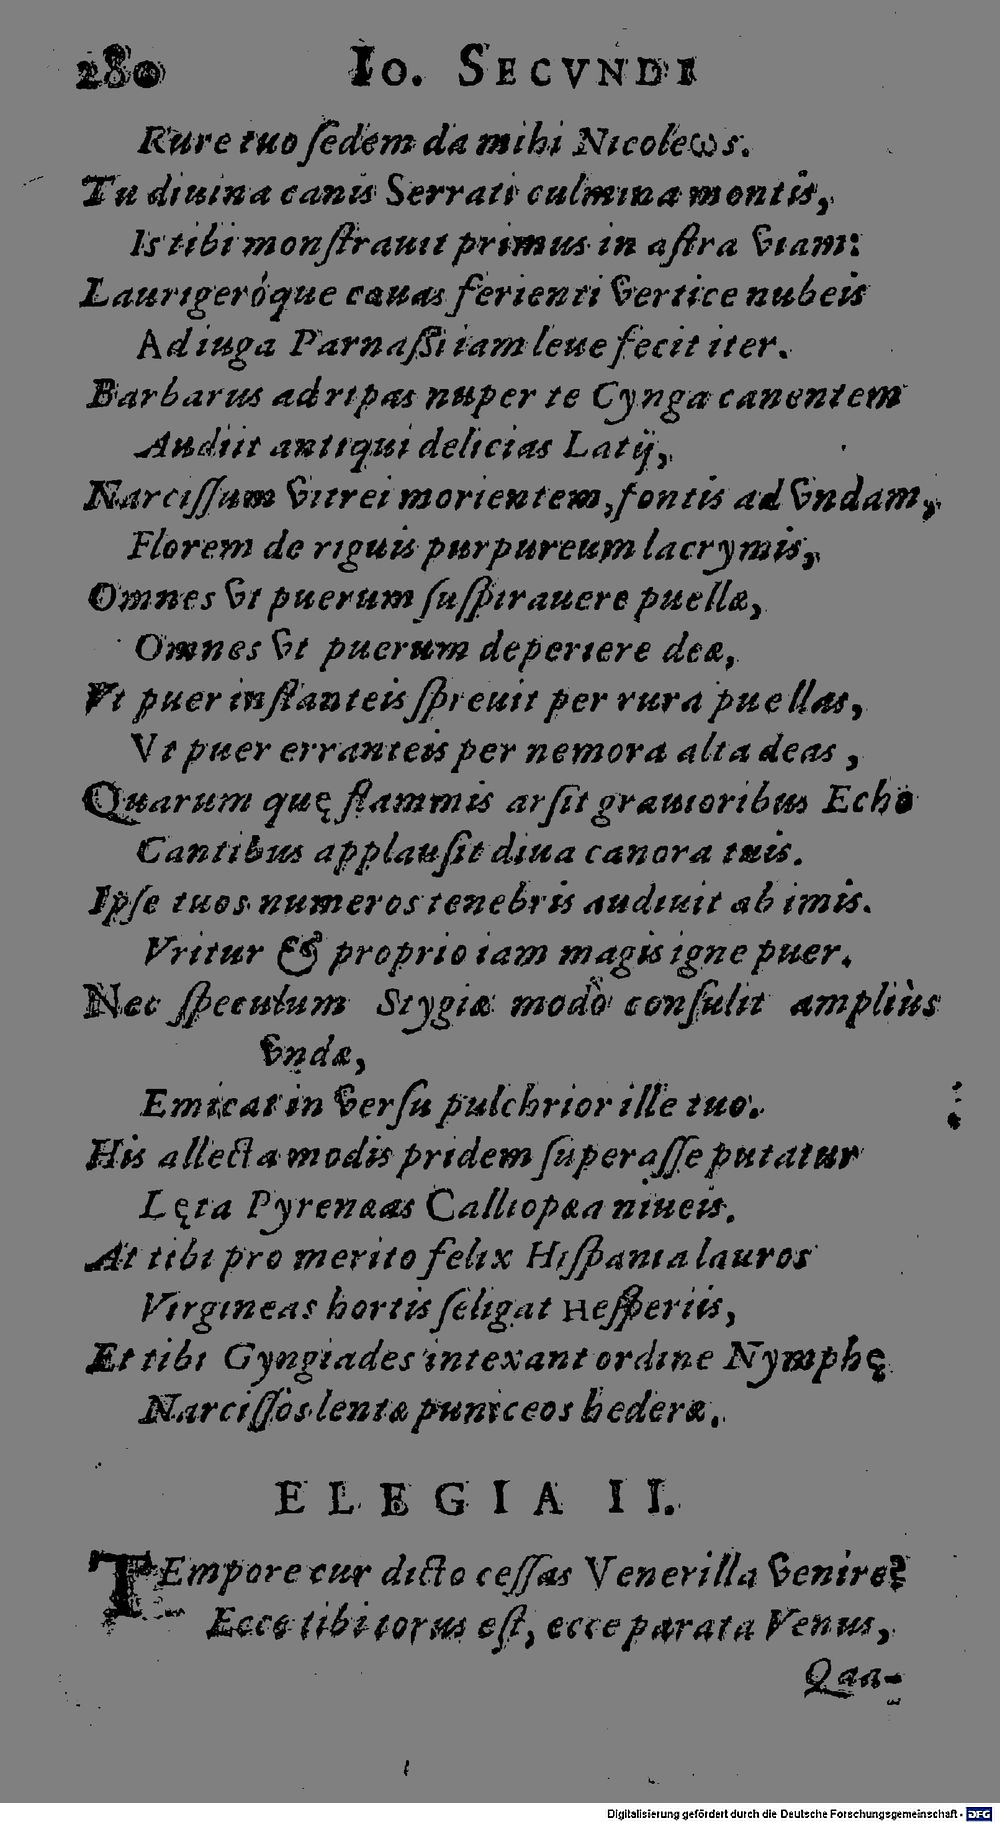 280 Io. SECVNDI
Rure tuo ſedem da mihi Nicoleωs.
Tu diuina canis Serrati culmina montis,
Is tibi monſtrauit primus in aſtra viam:
Laurigeróque cauas ferienti vertice nubeis
Ad iuga Parnaſſi iam leue fecit iter.
Barbarus ad ripas nuper te Cynga canentem
Audiit antiqui delicias Latij,
Narciſſum vitrei morientem, fontis ad vndam,
Florem de riguis purpureum lacrymis,
Omnes vt puerum ſuſpirauere puellæ,
Omnes vt puerum deperiere deæ,
Vt puer inſtanteis ſpreuit per rura puellas,
Vt puer erranteis per nemora alta deas,
Quarum quę flammis arſit grauioribus Echo
Cantibus applauſit diua canora tuis.
Ipſe tuos numeros tenebris audiuit ab imis.
Vritur & proprio iam magis igne puer.
Nec ſpeculum Stygiæ modò conſulit ampliùs
vndæ,
Emicat in verſu pulchrior ille tuo.
His allecta modis pridem ſuperaſſe putatur
Lęta Pyrenæas Calliopæa niueis.
At tibi pro merito felix Hiſpania lauros
Virgineas hortis ſeligat Heſperiis,
Et tibi Gyngiades intexant ordine Nymphę
Narciſſos lentæ puniceos hederæ.
ELEGIA II.
TEmpore cur dicto ceſſas Venerilla venire?
Ecce tibi torus eſt, ecce parata Venus,
Qaa-
Digitalisierung gefördert durch die Deutsche Forschungsgemeinschaft - DFG